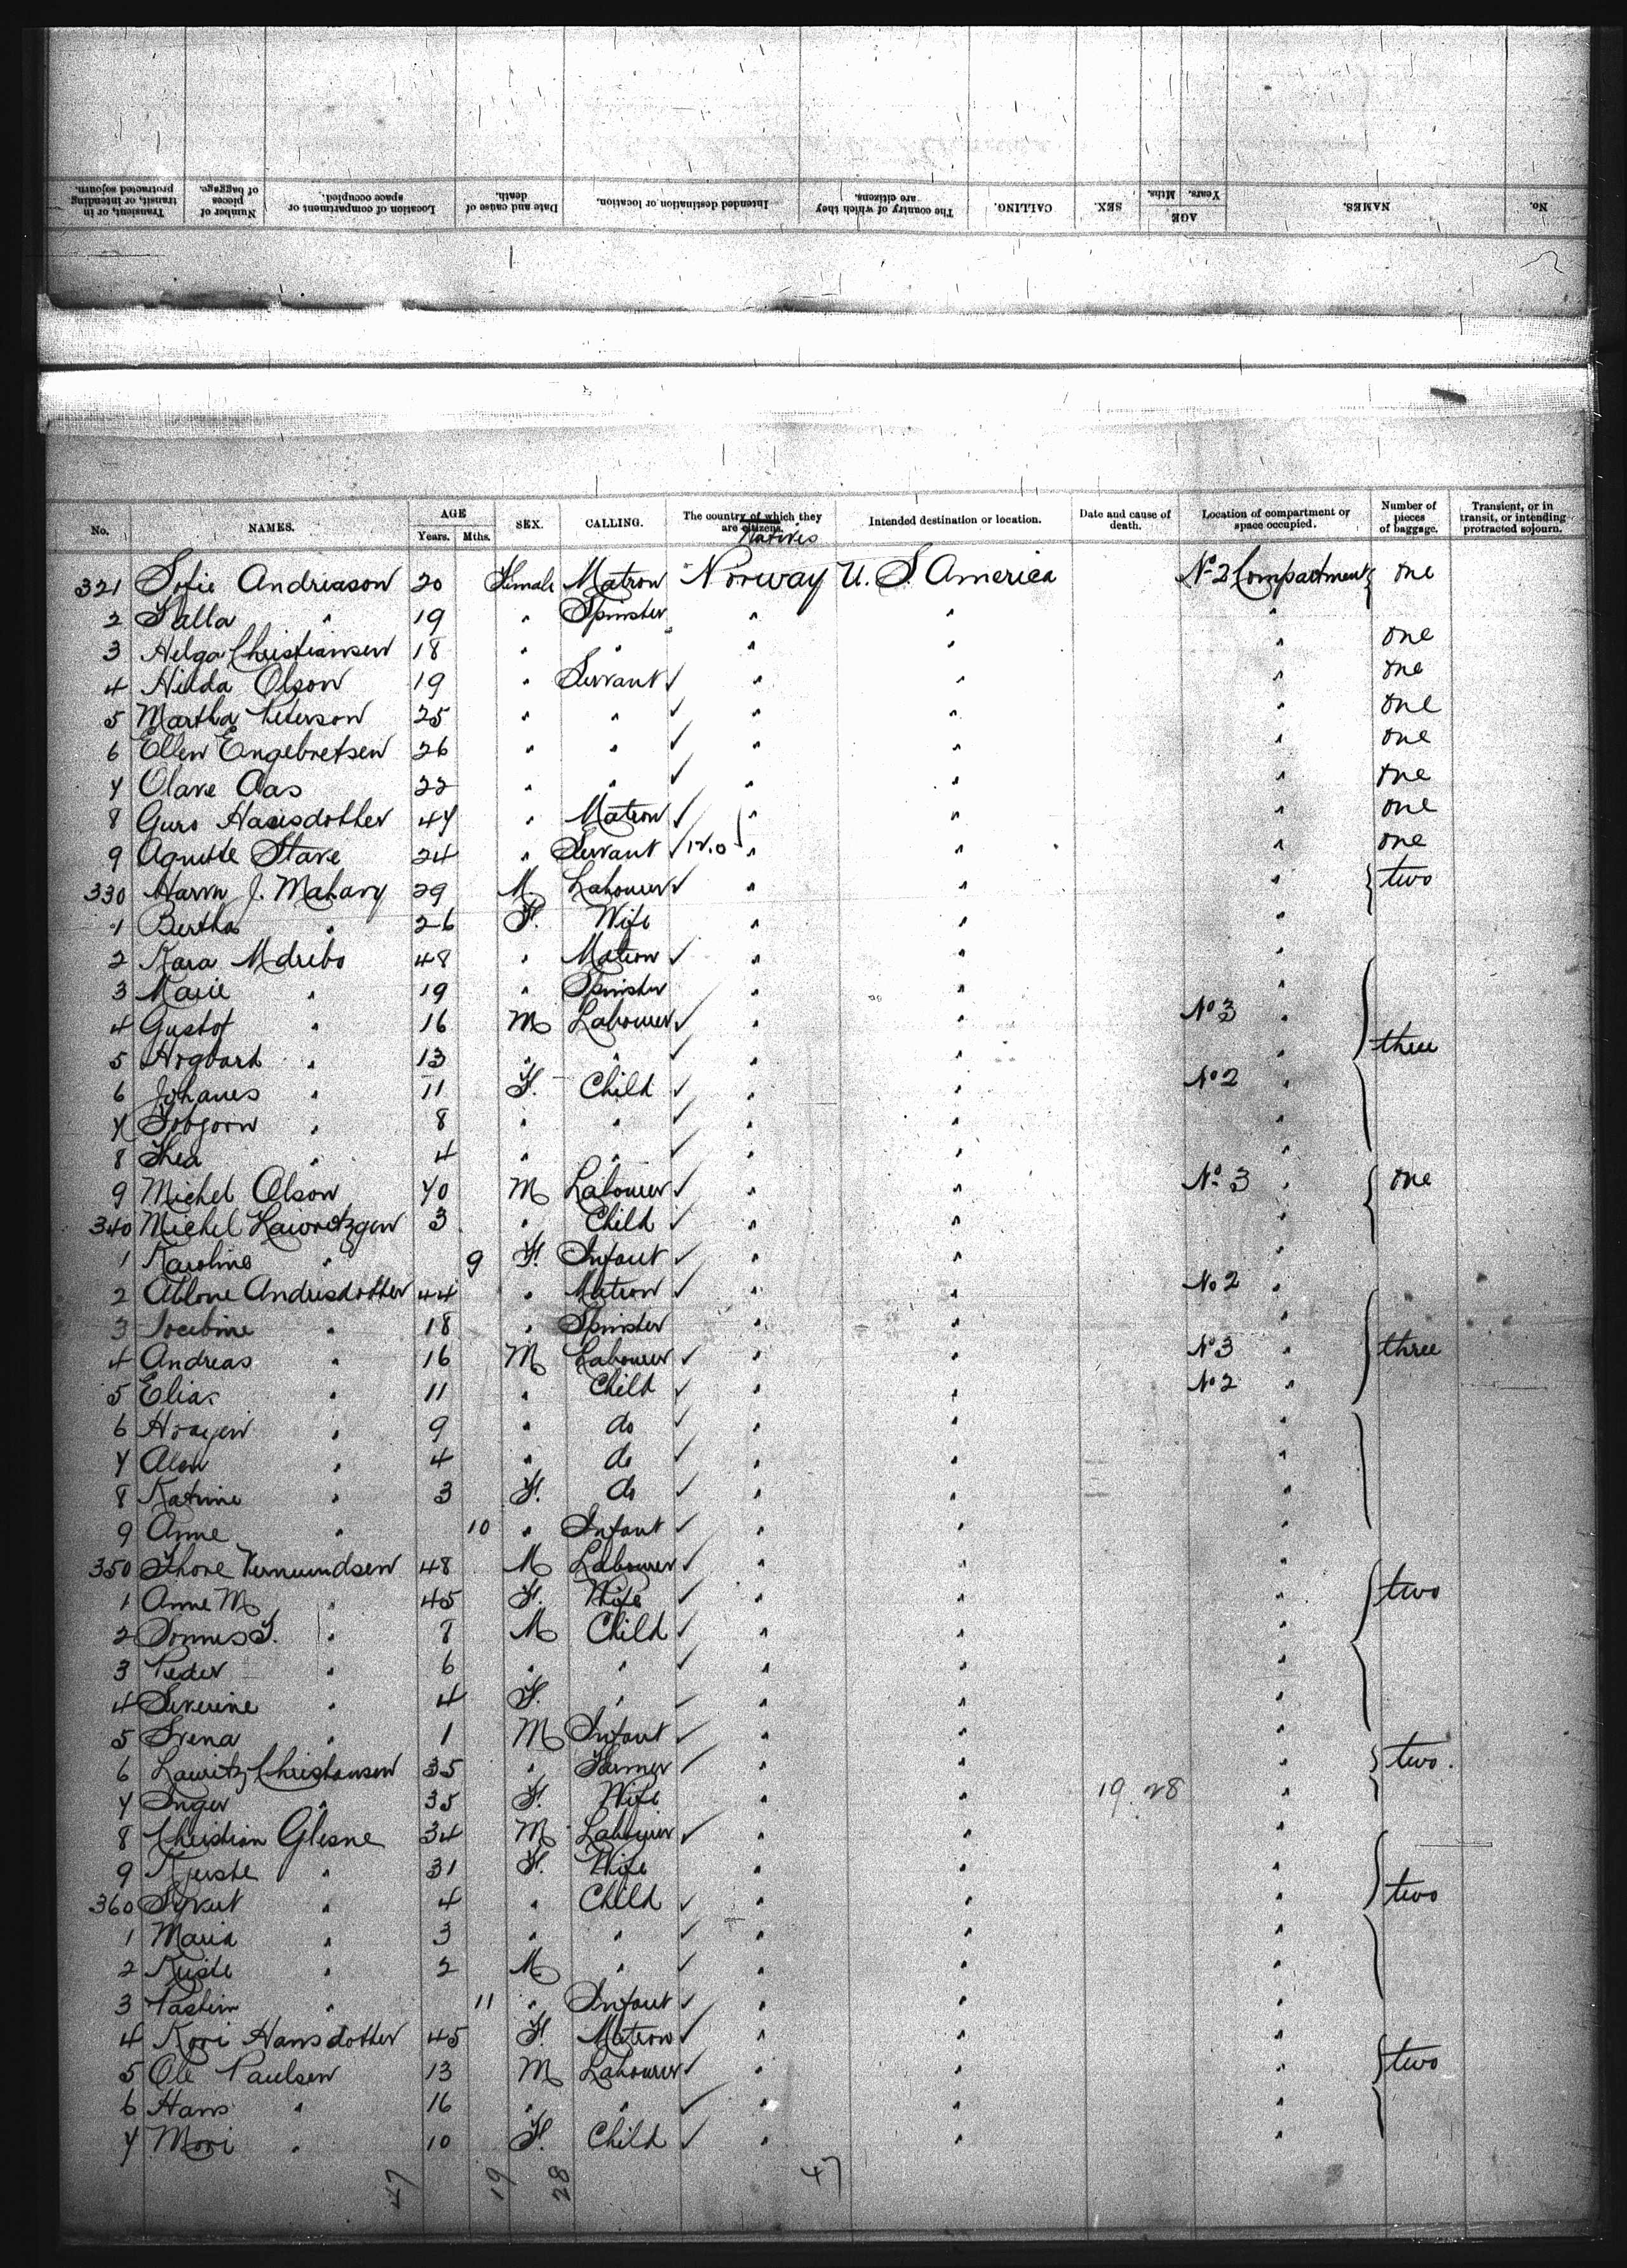 No. NAMES. AGE Years. Mths. SEX. CALLING. The country of which they are citizens. Intended destination or location. Date and cause of death. Location of compartment or space occupied. Number of pieces of baggage. Transient, or in transit, or intending protracted sojourn.
No. NAMES. AGE Years. Mths. SEX. CALLING. The country of which they are citizens. Natives Intended destination or location. Date and cause of death. Location of compartment or space occupied. Number of pieces of baggage. Transient, or in transit, or intending protracted sojourn.
321 Sofie Andriason 20 Female Matron Norway U. S. America No 2 Compartment one
2 " 19 " Spinster " " "
3 Helga Christiansen 18 " " " " " one
4 Hilda Olson 19 " Servant ✓ " " " one
5 Martha Peterson 25 " " ✓ " " " one
6 Ellen Engebretsen 26 " " ✓ " " " one
7 Olave Aas 22 " " ✓ " " " one
8 Guro 47 " Matron ✓ " " " one
9 Agnette Stave 24 " Servant ✓ " " " one
330 J. Mahary 29 M. Labourer ✓ " " " two
1 Bertha " 26 F. Wife " " "
2 Kara 48 " Matron ✓ " " "
3 Marie " 19 " Spinster " " "
4 Gustof " 16 M Labourer ✓ " " No 3 "
5 " 13 " " ✓ " " " three
6 Johanes " 11 F. Child ✓ " " No 2 "
7 " 8 " " ✓ " " "
8 Thea " 4 " " ✓ " " "
9 Michel Olson 70 M Labourer ✓ " " No 3 " one
340 Michel 3 " Child ✓ " " "
1 Karoline " 9 F. Infant ✓ " " "
2 Andrisdotter 44 " Matron ✓ " " No 2 "
3 " 18 " Spinster " " "
4 Andreas " 16 M Labourer ✓ " " No 3 " three
5 Elias " 11 " Child ✓ " " No 2 "
6 " 9 " do ✓ " " "
7 " 4 " do ✓ " " "
8 Katrine " 3 F. do ✓ " " "
9 Anne " 10 " Infant ✓ " " "
350 Thore Vermundsen 48 M Labourer ✓ " " "
1 Anne M " 45 F. Wife ✓ " " " two
2 " 8 M Child ✓ " " "
3 Peder " 6 " " ✓ " " "
4 Severine " 4 F. " ✓ " " "
5 Svena " 1 M Infant ✓ " " "
6 Lauritz Christansen 35 " Farmer ✓ " " " two.
7 Inger " 35 F. Wife " " 19 28 "
8 Christian Glesne 34 M Labourer ✓ " " "
9 " 31 F. Wife " " "
360 " 4 " Child ✓ " " " two
1 Maria " 3 " " ✓ " " "
2 " 2 M " ✓ " " "
3 " 11 " Infant ✓ " " "
4 Kori Hansdotter 45 F. Matron ✓ " " "
5 Ole Paulsen 13 M Labourer ✓ " " " two
6 Hans " 16 " " ✓ " " "
7 Mori " 10 F. Child ✓ " " "
47 19 28 47